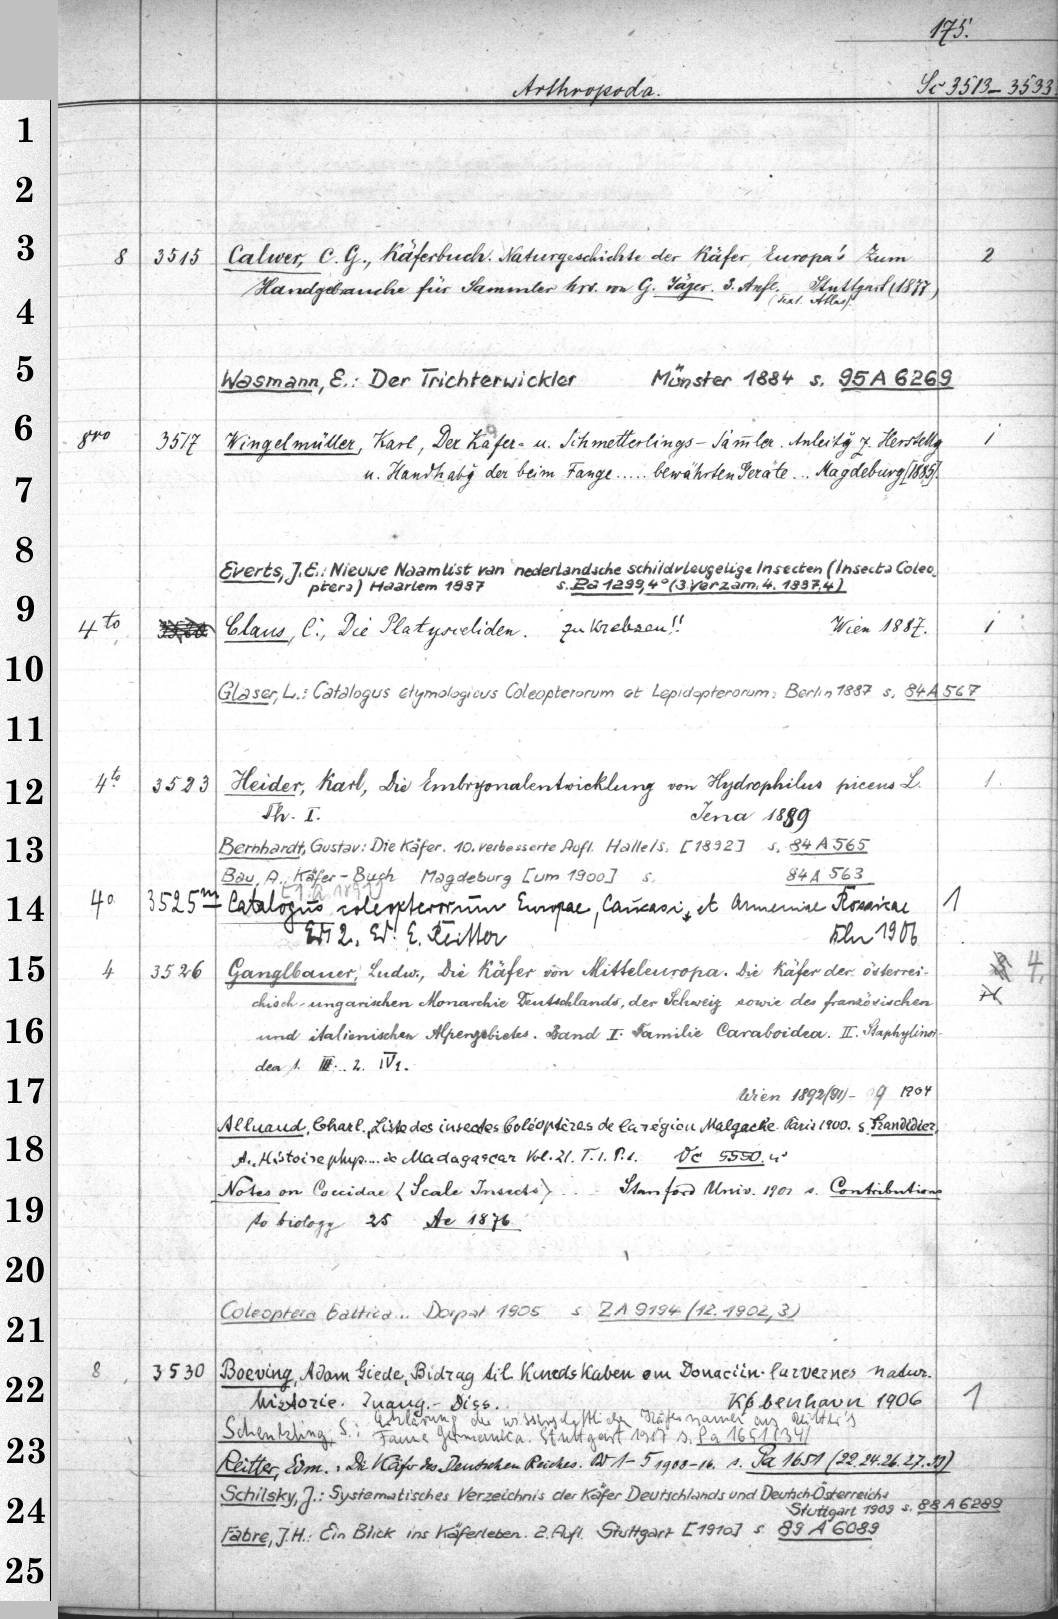 175.
Arthropoda. Sc 3513 – 3533
1
2
3
8 3515 Calwer, C. G., Käferbuch. Naturgeschichte der Käfer Europa's Zum 2
Handgebrauche für Sammler hrs. von G. Jäger. 3. Aufl. Stuttgart (1877)
(incl. Atlas).
4
5
Wasmann, E.: Der Trichterwickler Münster 1884 s. 95 A 6269
6
8vo 3517 Wingelmüller, Karl, Der Käfer- u. Schmetterlings-Samler. Anleitg z. Herstellg 1
u. Handhabg der beim Fange ..... bewährten Geräte ... Magdeburg [1885].
7
8
Everts, J.E.: Nieuwe Naamlist van nederlandsche schildvleugelige Insecten (Insecta Coleo-
ptera) Haarlem 1887 s. Pa 1299, 4° (3. Verzam. 4. 1887, 4)
9
4to Claus, C., Die Platypseliden. zu Krebsen!! Wien 1887. 1
10
Glaser, L.: Catalogus etymologicus Coleopterorum et Lepidopterorum: Berlin 1887 s. 84 A 567
11
12
4to 3523 Heider, Karl, Die Embryonalentwicklung von Hydrophilus piceus L. 1.
Th. I. Jena 1889
13
Bernhardt, Gustav: Die Käfer. 10. verbesserte Aufl. Halle/s. [1892] s. 84 A 565
Bau, A., Käfer-Buch Magdeburg [um 1900] s. 84 A 563
14
4° 3525m Catalogus coleopterorum Europae, Caucasi, et Armeniae Rossicae 1
Ed 2. Ed. E. Reitter 1906
15
4 3526 Ganglbauer, Ludw., Die Käfer von Mitteleuropa. Die Käfer der österrei- 4,
chisch-ungarischen Monarchie Deutschlands, der Schweiz sowie des französischen
16
und italienischen Alpengebietes. Band I. Familie Caraboidea. II. Staphylinoi-
dea 1. III. 2. IV 1.
17
Wien 1892(91) – 1904
Alluaud, Charl., Liste des insectes Coléoptères de la région Malgache. Paris 1900. s. Grandidier,
18
A., Histoire phys.... de Madagascar Vol. 21. T. 1. P. 1. Uc 5550. 4°
Notes on Coccidae (Scale Insects) ... Stanford Univ. 1901 s. Contributions
19
to biology 25 Ae 1876
20
21
Coleoptera baltica... Dorpat 1905 s. ZA 9194 (12. 1902, 3)
8 3530 Boeving, Adam Giede, Bidrag til Kundskaben om Donaciin-larvernes natur-
22
historie. Inaug.-Diss. København 1906 1
Schenkling, S.: Erklärung der wissenschaftlichen Käfernamen aus Reitter's
Fauna Germanica. Stuttgart 1917 s. Pa 1651 (34)
23
Reitter, Edm.: Die Käfer des Deutschen Reiches. Bd 1–5 1908–16. s. Pa 1651 (22. 24. 26. 27. 33)
Schilsky, J.: Systematisches Verzeichnis der Käfer Deutschlands und Deutsch-Österreichs
24
Stuttgart 1909 s. 88 A 6289
Fabre, J.H.: Ein Blick ins Käferleben. 2. Aufl. Stuttgart [1910] s. 89 A 6089
25